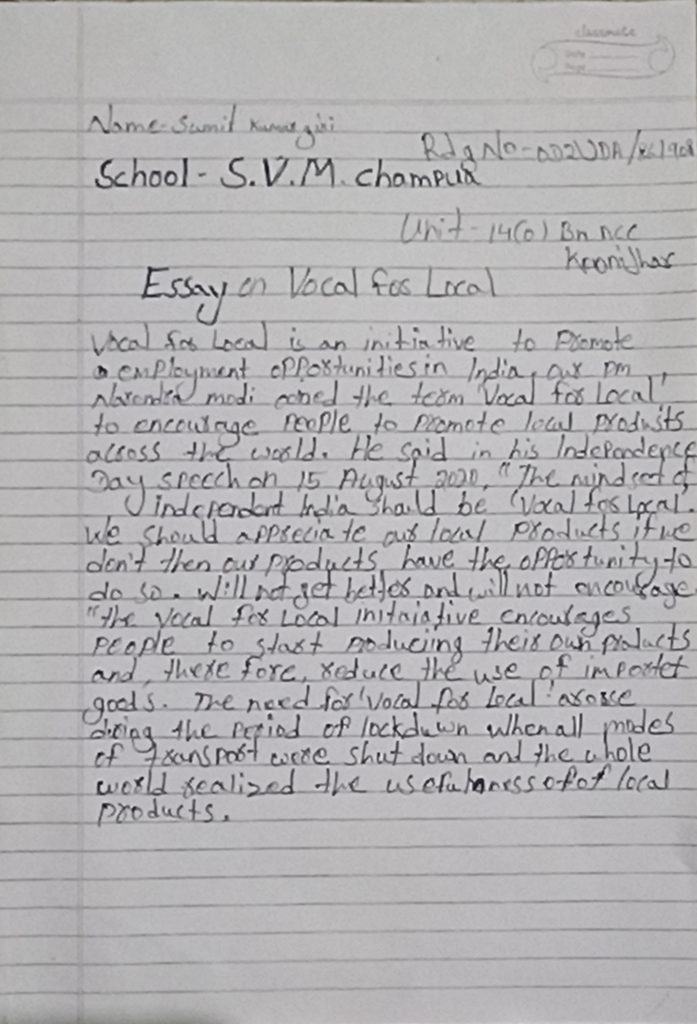 classmate
Date
Page
Name-Sumit Kumar giri
School - S.V.M. champua
Unit - 14(0) Bn ncc
Keonjhar
Essay on Vocal for Local
Vocal for Local is an initiative to Promote
employment opportunities in India, our pm
Narendra modi coned the term 'Vocal for Local'
to encourage people to promote local produsts
across the world. He said in his Independence
Day speech on 15 August 2020, "The mindset of
independent India should be 'Vocal for Local'.
We should appreciate our local products if we
don't then our products have the opportunity to
do so. Will not get better and will not encourage
"the Vocal for Local initaiative encourages
people to start producing their own products
and, there fore, reduce the use of importet
goods. The need for 'Vocal for Local' arosse
during the period of lockdown when all modes
of transport were shut down and the whole
world realized the usefulness of of local
products.